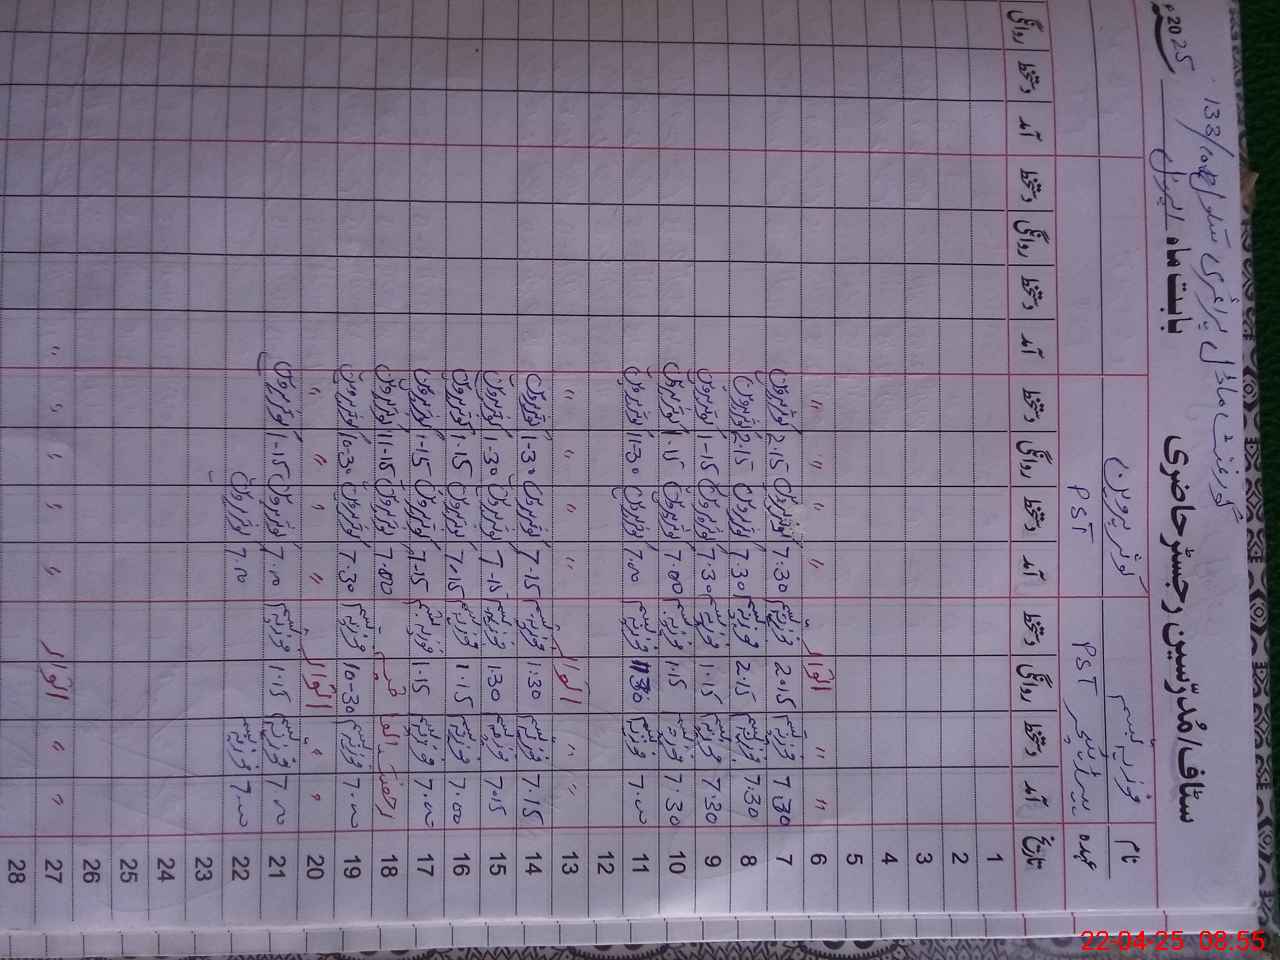 گورنمنٹ ماڈل پرائمری سکول 138/10R
سٹاف/مُدرّسین رجسٹر حاضری بابت ماہ اپریل 2025ء
نام فوزیہ نسیم کوثر پروین
عہدہ PST PST
تاریخ آمد دستخط روانگی دستخط آمد دستخط روانگی دستخط آمد دستخط روانگی دستخط آمد دستخط روانگی
1
2
3
4
5
6 〃 〃 اتوار 〃 〃 〃 〃
7 7.30 فوزیہ نسیم 2.15 فوزیہ نسیم 7.30 کوثر پروین 2.15 کوثر پروین
8 7.30 فوزیہ نسیم 2.15 فوزیہ نسیم 7.30 کوثر پروین 2.15 کوثر پروین
9 7.30 فوزیہ نسیم 1.15 فوزیہ نسیم 7.30 کوثر پروین 1-15 کوثر پروین
10 7.30 فوزیہ نسیم 1.15 فوزیہ نسیم 7.00 کوثر پروین 1.15 کوثر پروین
11 7.00 فوزیہ نسیم 11.30 فوزیہ نسیم 7.00 کوثر پروین 11-30 کوثر پروین
12
13 〃 〃 اتوار 〃 〃 〃 〃
14 7.15 فوزیہ نسیم 1.30 فوزیہ نسیم 7-15 کوثر پروین 1-30 کوثر پروین
15 7.15 فوزیہ نسیم 1.30 فوزیہ نسیم 7-15 کوثر پروین 1-30 کوثر پروین
16 7.00 فوزیہ نسیم 1.15 فوزیہ نسیم 7.15 کوثر پروین 1.15 کوثر پروین
17 7.00 فوزیہ نسیم 1.15 فوزیہ نسیم 7-15 کوثر پروین 1-15 کوثر پروین
18 رخصت 7.00 کوثر پروین 11-15 کوثر پروین
19 7.00 فوزیہ نسیم 10-30 فوزیہ نسیم 7.30 کوثر پروین 10-30 کوثر پروین
20 〃 〃 اتوار 〃 〃 〃 〃
21 7.00 فوزیہ نسیم 1.15 فوزیہ نسیم 7.00 کوثر پروین 1-15 کوثر پروین
22 7.00 فوزیہ نسیم 7.00 کوثر پروین
23
24
25
26
27 〃 〃 اتوار 〃 〃 〃 〃 〃
28
22-04-25 08:55